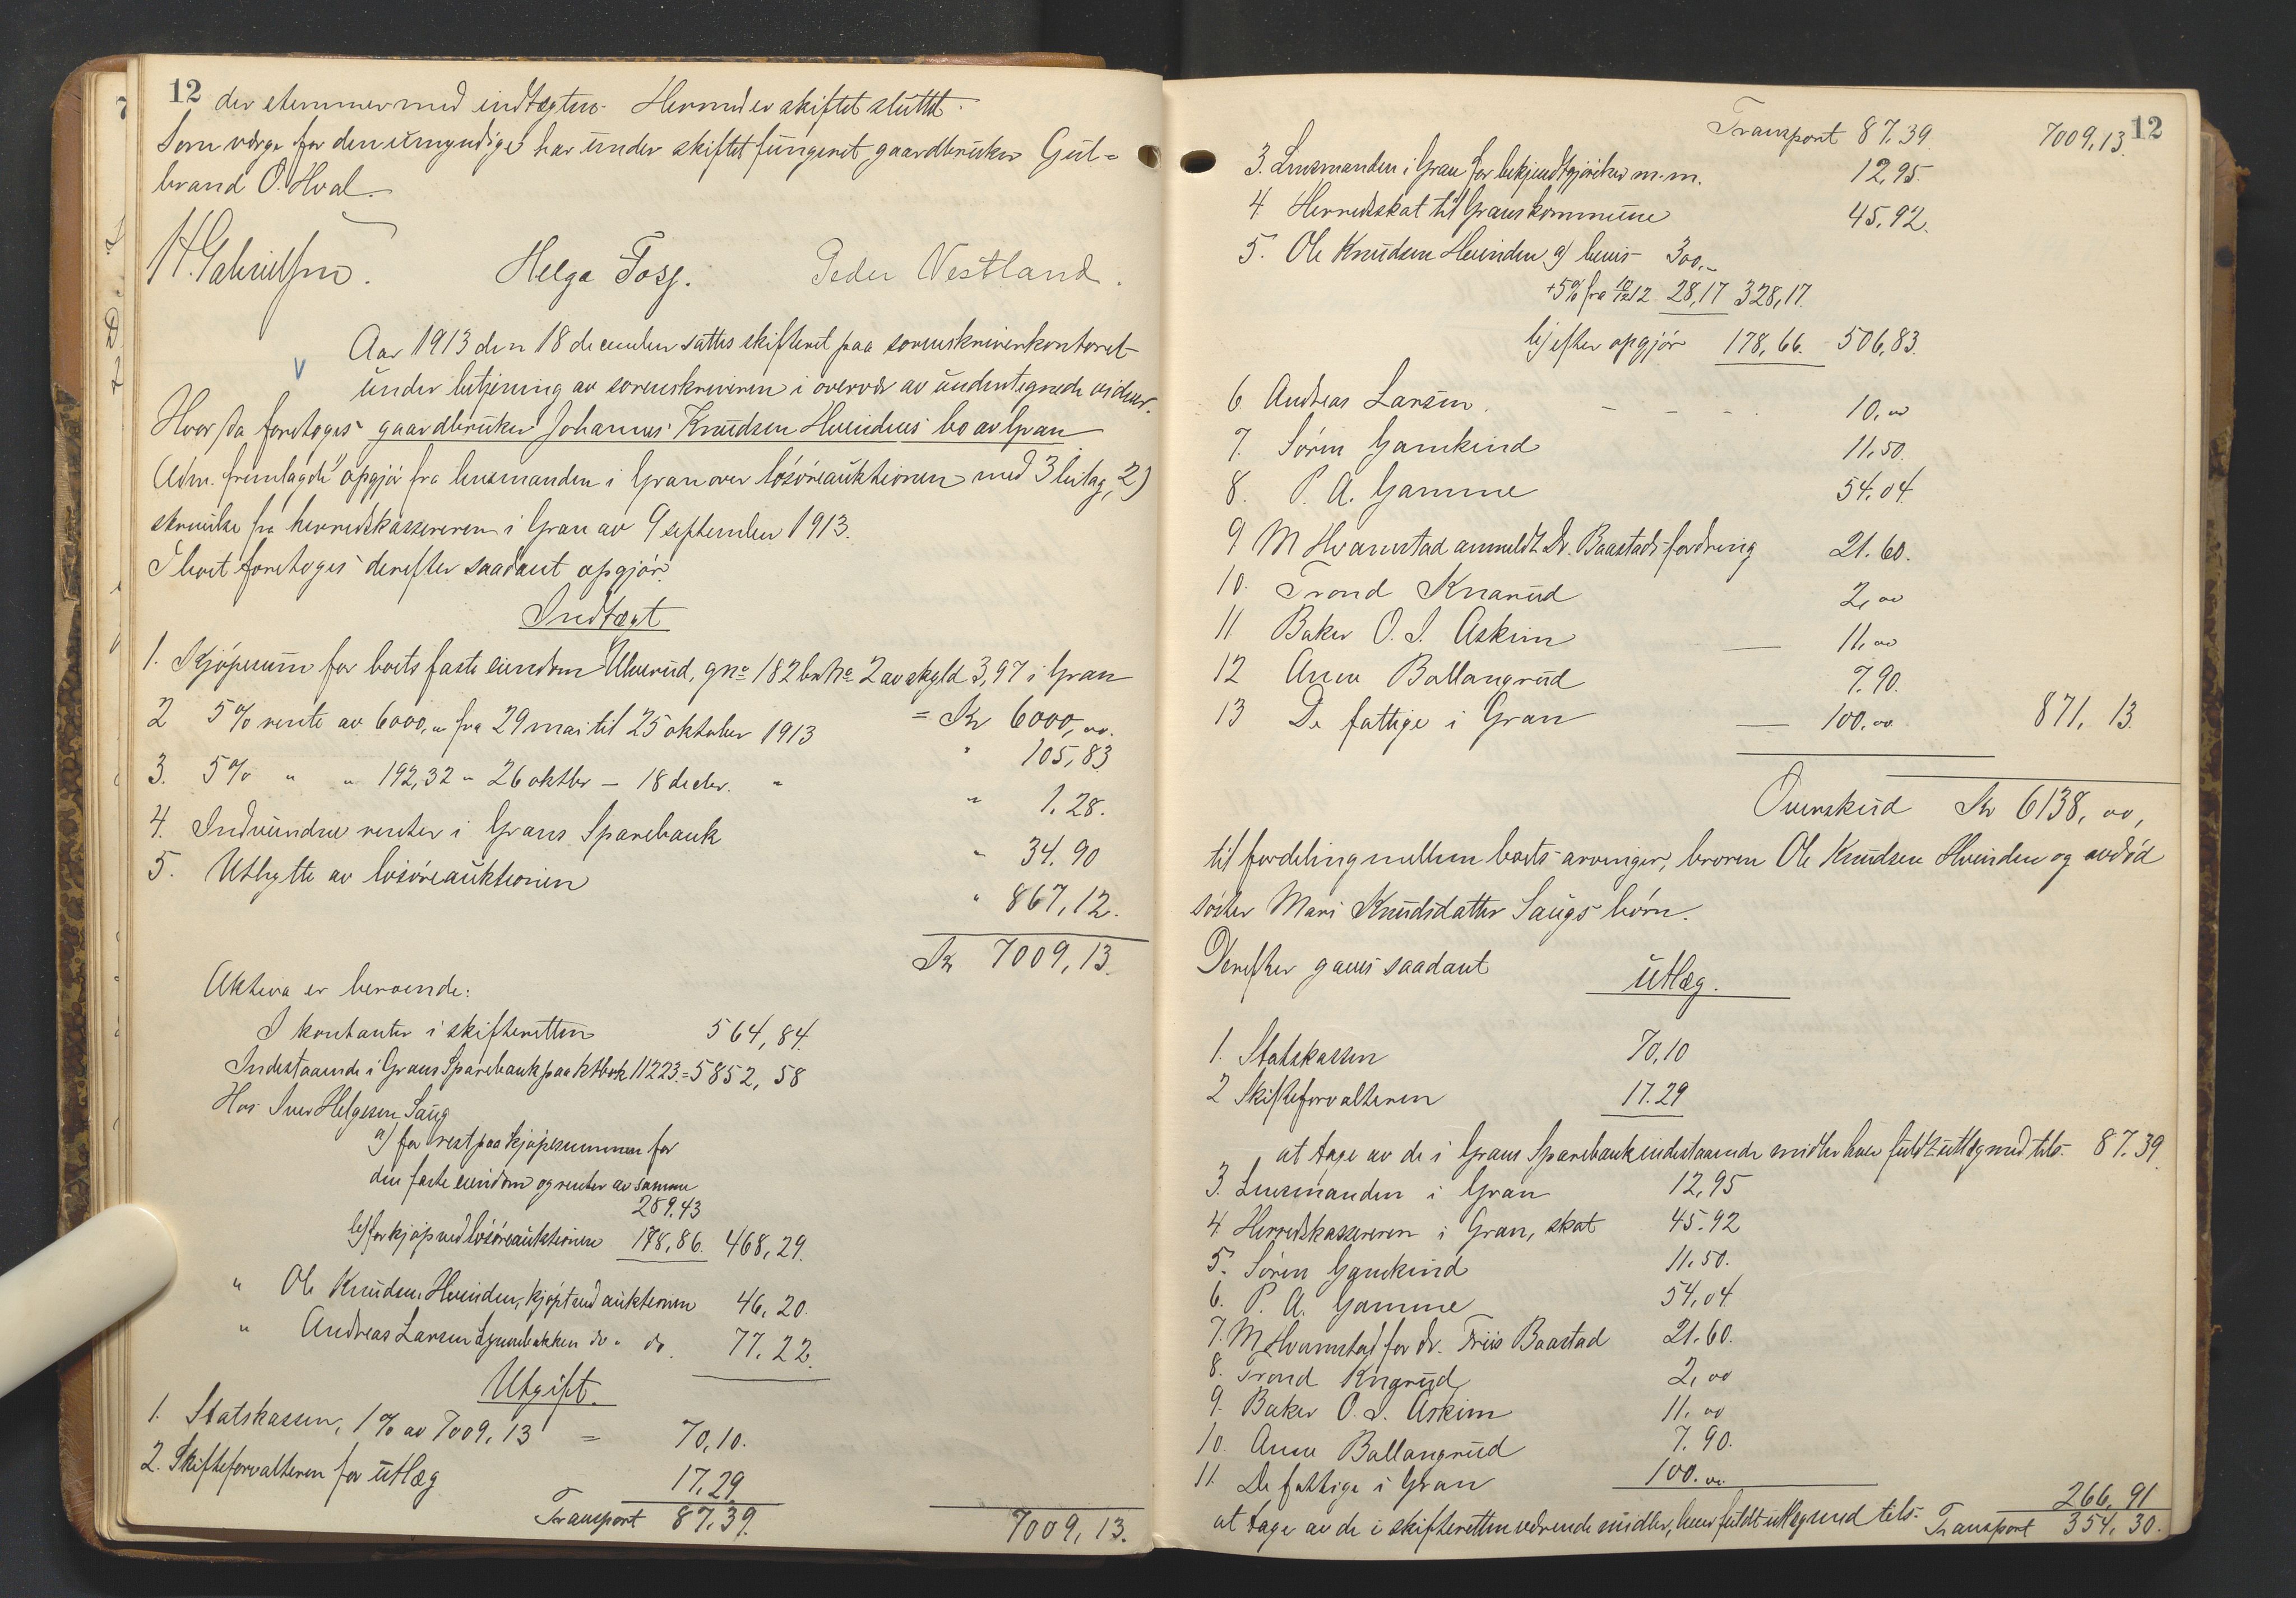 12
der stemmer med indtægten. Hermed er skiftet sluttet.
Som værge for den umyndige har under skiftet fungeret gaardbruker Gul=
brand O. Hval.
H. Gabrielsen. Helga Fosj. Peder Vestland.
Aar 1913 den 18 december sattes skifteret paa sorenskriverkontoret
under betjening av sorenskriveren i overvær av undertegnede vidner.
Hvor da foretoges gaardbruker Johannes Knudsen Hvindens bo av Gran
Adm. fremlagde 1) opgjør fra lensmanden i Gran over løsøreauktionen med 3 bilag, 2)
skrivelse fra herredskassereren i Gran av 9 september 1913.
I boet foretoges derefter saadant opgjør.
Indtægt
1. Kjøpesum for boets faste eiendom Ulverud, gno 182 bno 2 av skyld 3,97 i Gran
= Kr 6000,00.
2 5% rente av 6000,00 fra 29 mai til 25 oktober 1913 " 105,83
3. 5% " " 192,32 " 26 oktbr – 18 decbr. " " 1.28.
4. Indvundne renter i Grans Sparebank " 34.90
5. Utbytte av løsøreauktionen " 867,12.
Kr 7009,13.
Aktiva er beroende:
I kontanter i skifteretten 564,84.
Indestaaende i Grans Sparebank paa ktbok 11223. = 5852,58
Hos Iver Helgesen Saug
a) for rest paa kjøpesummen for
den faste eiendom og renter av samme
289.43
b) for kjøp ved løsøreauktionen 178,86. 468,29.
" Ole Knudsen Hvinden, kjøpt ved auktionen 46,20.
" Andreas Larsen do " do 77.22.
Utgift.
1. Statskassen, 1% av 7009,13 = 70,10.
2. Skifteforvalteren for utlæg 17.29
Transport 87.39. 7009,13.
12
Transport 87.39. 7009,13
3. Lensmanden i Gran for bekjendtgjørelser m.m. 12,95.
4. Herredsskat til Grans kommune 45,92.
5. Ole Knudsen Hvinden a) bevis 300,–
+5% fra 10/12 12 28,17 328,17.
b) efter opgjør 178,66. 506,83.
6 Andreas Larsen. – – – 10,00
7. Søren Gamkind 11,50.
8. P. A. Gamme 54,04.
9 M Hvamstad anmeldt Dr. Baastads fordring 21.60.
10. Trond Knarud 2,00
11. Baker O. I. Askim — 11,00
12 Anne Ballangrud 7.90.
13 De fattige i Gran — 100,00 871,13.
Overskud Kr 6138,00,
til fordeling mellem boets arvinger, broren Ole Knudsen Hvinden og avdød
søster Mari Knudsdatter Saugs børn.
Derefter gaves saadant
utlæg.
1. Statskassen 70,10
2 Skifteforvalteren 17.29
at tage av de i Grans Sparebank indestaaende midler have fuldt utlæg med tils. 87.39
3. Lensmanden i Gran 12,95
4. Herredskassereren i Gran, skat 45.92
5. Søren Gamkind 11.50.
6. P. A. Gamme 54,04
7. M Hvamstad for dr. Friis Baastad 21.60.
8. Trond Knarud 2,00
9. Baker O. I. Askim 11.00
10. Anne Ballangrud 7.90.
11. De fattige i Gran 100.00
266,91
at tage av de i skifteretten værende midler, have fuldt utlæg med tils.
Transport 354,30.